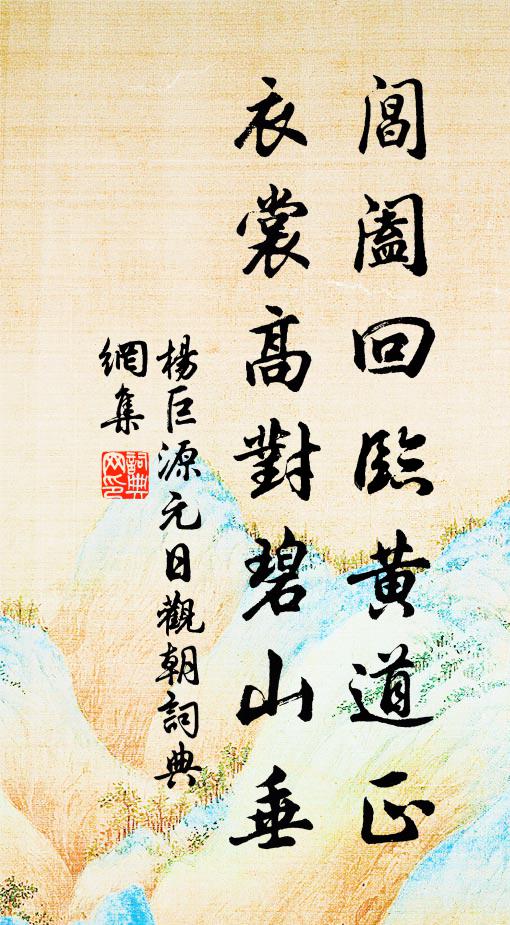 閶闔回臨黃道正
衣裳高對碧山垂
楊巨源元日觀朝詞典
網集
詞典網印